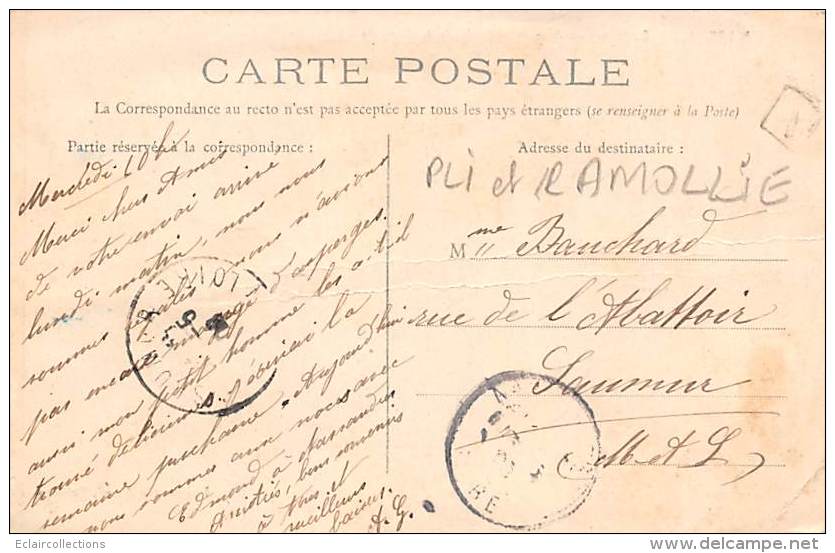 CARTE POSTALE
La Correspondance au recto n'est pas acceptée par tous les pays étrangers (se renseigner à la Poste)
Partie réservée à la correspondance :
Mercredi 10 h
Merci chers Amis
de votre envoi arrivé
lundi matin, nous nous
sommes régalés nous n'avions
pas encore mangé d'asperges.
aussi mon petit homme les a-t-il
trouvé délicieuses, j'écrirai la
semaine prochaine. Aujourd'hui
nous sommes aux noces avec
Edmond à Nassandres
Amitiés, bons souvenirs
à tous et
meilleurs
baisers.
A. G.
Adresse du destinataire :
PLI et RAMOLLIE
Mme Bauchard
rue de l'Abattoir
Saumur
(M. et L.)
LOIRE
Eclaircollections
©delcampe.net